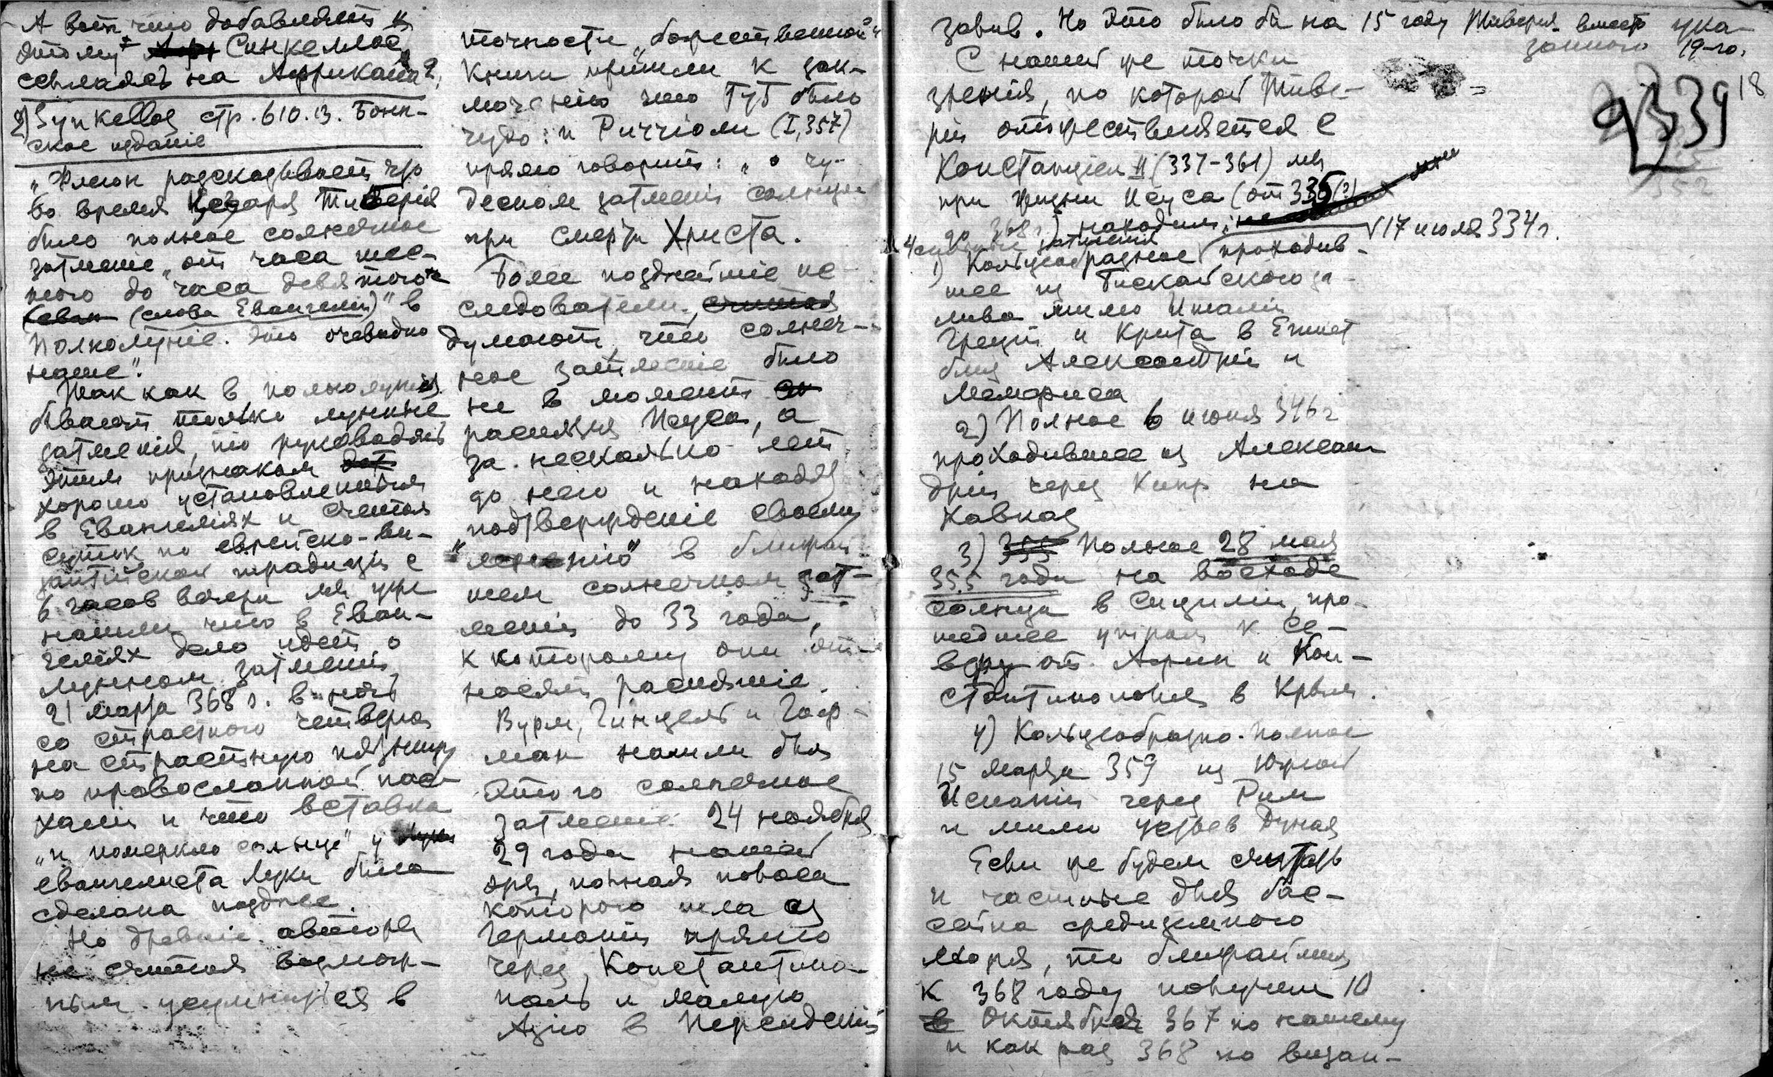 А вот что добавляет к
этому Синкеллос,
ссылаясь на Африкана 2.
2) Synkellos стр. 610. В. Бонн-
ское издание
„Флегон рассказывает что
во время Цезаря Тиверия
было полное солнечное
затмение „от часа шес-
того до часа девятого“
(слова Евангелий)“ в
полнолуние. Это очевидно
наше“.
Так как в полнолуния
бывают только лунные
затмения, то руководясь
этим признаком
хорошо установленным
в Евангелиях и считая
сутки по еврейско-ви-
зантийской традиции с
6 часов вечера мы уже
нашли что в Еван-
гелиях дело идет о
лунном затмении
21 марта 368 г. в ночь
со страстного четверга
на страстную пятницу
по православной пас-
халии и что вставка
„и померкло солнце“ у
евангелиста Луки была
сделана позднее.
Но древние авторы
не считая возмож-
ным усумниться в
точности „божественной“
книги пришли к зак-
лючению что тут было
чудо: и Риччиоли (I, 357)
прямо говорит: „о чу-
десном затмении солнца
при смерти Христа.
Более позднейшие ис-
следователи,
думают, что солнеч-
ное затмение было
не в момент
распятия Исуса, а
за несколько лет
до него и находят
подтверждение своему
„мнению“ в ближай-
шем солнечном зат-
мении до 33 года,
к которому они от-
носят распятие.
Вурм, Гинцель и Гоф-
ман нашли для
этого солнечное
затмение 24 ноября
29 года нашей
эры, полная полоса
которого шла из
Германии прямо
через Константино-
поль и Малую
Азию в Персидский
залив. Но это было бы на 15 году Тиверия вместо ука-
занного 19-го.
18
339
С нашей же точки
зрения, по которой Тиве-
рий отожествляется с
Констанцием II (337-361) мы
при жизни Исуса (от 335(?)
до 368 г.) находим:
4 солнечные затмения
1) Кольцеобразное 17 июля 334 г. проходив-
шее из Бискайского за-
лива мимо Италии
Греции и Крита в Египет
близ Александрии и
Мемфиса
2) Полное 6 июня 346 г
проходившее из Алексан-
дрии через Кипр на
Кавказ
3) 355 Полное 28 мая
355 года на восходе
солнца в Сицилии, про-
шедшее утром к се-
веру от Афин и Кон-
стантинополя в Крым.
4) Кольцеобразно-полное
15 марта 359 из Южной
Испании через Рим
и мимо устьев Дуная
Если же будем считать
и частные для бас-
сейна средиземного
моря, то ближайшим
к 368 году получим 10
Октября 367 по нашему
и как раз 368 по визан-